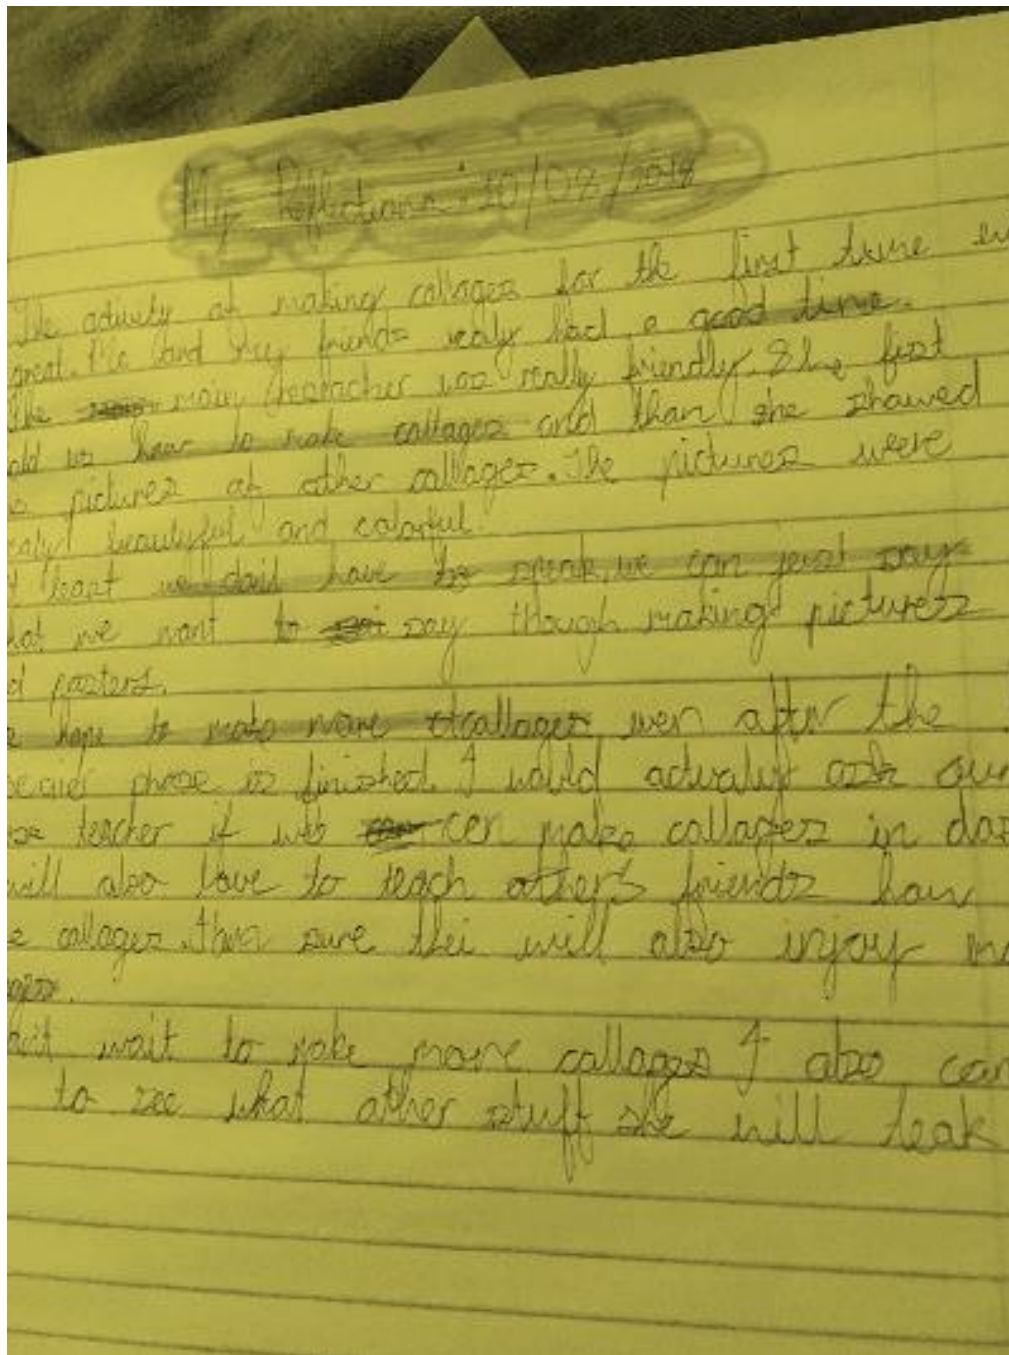 My Reflections: 10/08/2018
The activity of making collages for the first time
great. Me and my friends realy had a good time.
The main teacher was really friendly. She first
old us how to make collages and than she showed
pictures of other collages. The pictures were
ealy beautyful and colorful.
least we don't have to speak, we can just say
hat we want to say though making pictures
d posters.
e hope to make more collages even after the
phase is finished. I would actualy ask our
teacher if we can make collages in
will also love to teach others friends how
collages. sure thei will also injoy
ages.
wait to make more collages I also can
to see what other stuff she will teak